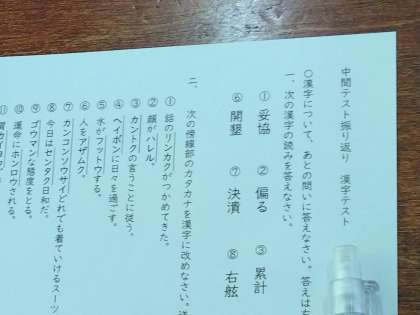 中間テスト振り返り　漢字テスト
〇漢字について、あとの問いに答えなさい。答えは
一、次の漢字の読みを答えなさい。
①妥協　②偏る　③累計
⑥開墾　⑦決潰　⑧右舷
二、次の傍線部のカタカナを漢字に改めなさい。
①話のリンカクがつかめてきた。
②顔がハレル。
③カントクの言うことに従う。
④ヘイボンに日々を過ごす。
⑤水がフットウする。
⑥人をアザムク。
⑦カンコンソウサイどれでも着ていけるスーツ
⑧今日はセンタク日和だ。
⑨ゴウマンな態度をとる。
⑩運命にホンロウされる。
⑪